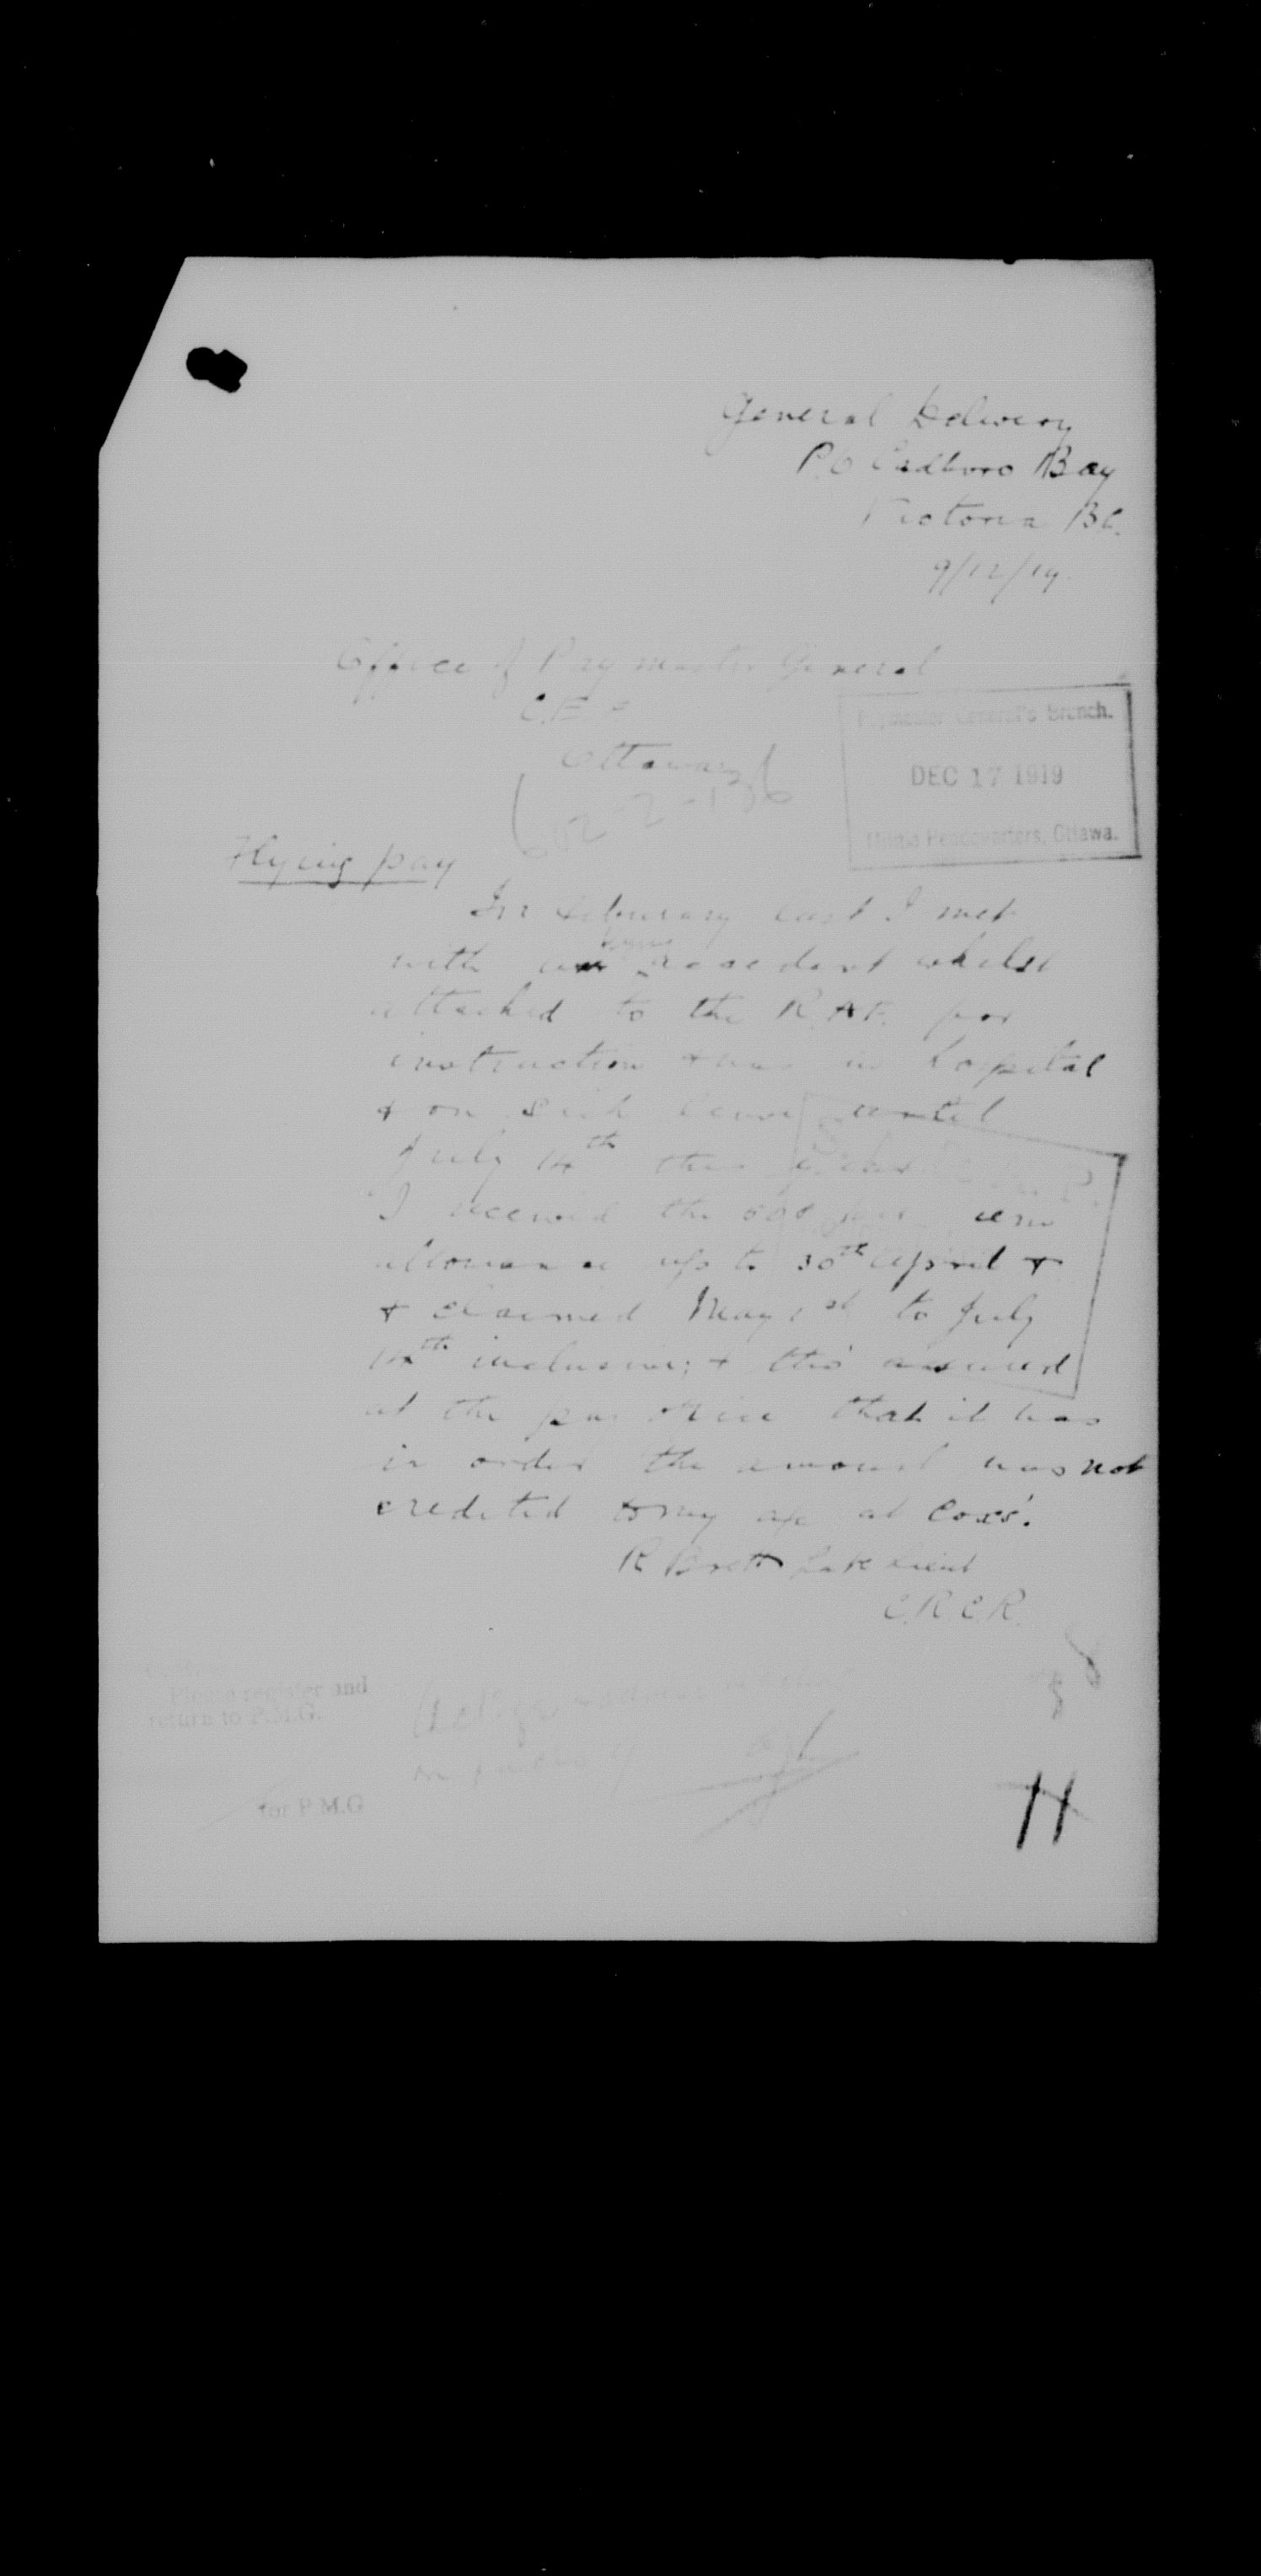 General Delivery
P.O Cadboro Bay
Victoria BC.
9/12/19.
Office of Pay master General
C.E.F
Ottawa
Paymaster General's Branch.
DEC 17 1919
Militia Headquarters, Ottawa.
Flying pay
In February last I met
flying
with a accident whilst
attached to the R.A.F. for
instruction & was in hospital
& on sick leave until
July 14th this year
I received the
allowance up to 30th April &
& claimed May 1st to July
14th inclusive; & tho' assured
at the pay office that it was
in order the amount was not
credited to my a/c at Cox's.
R Brett late Lieut
C.R.C.R.
Please register and
return to P.M.G.
for P.M.G